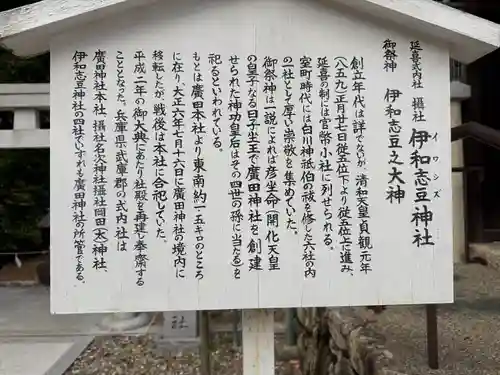 延喜式内社 摂社 伊和志豆神社
イワシズ
御祭神 伊和志豆之大神
創立年代は詳でないが、清和天皇貞観元年
(八五九)正月廿七日従五位下より従五位上に進み、
延喜の制には官幣小社に列せられる。
室町時代には白川神祇伯の祓を修した六社の内
の一社として厚い崇敬を集めていた。
御祭神は一説によれば彦坐命(開化天皇
の皇子なる日子坐王で廣田神社を創建
せられた神功皇后はその四世の孫に当たる)を
祀るといわれている。
もとは廣田本社より東南約一・五キロのところ
に在り、大正六年七月十六日に廣田神社の境内に
移転したが、戦後は本社に合祀していた。
平成二年の御大典にあたり社殿を再建し奉斎する
こととなった。兵庫県武庫郡の式内社は
廣田神社本社、摂社名次神社、摂社岡田(太)神社、
伊和志豆神社の四社でいずれも廣田神社の所管である。